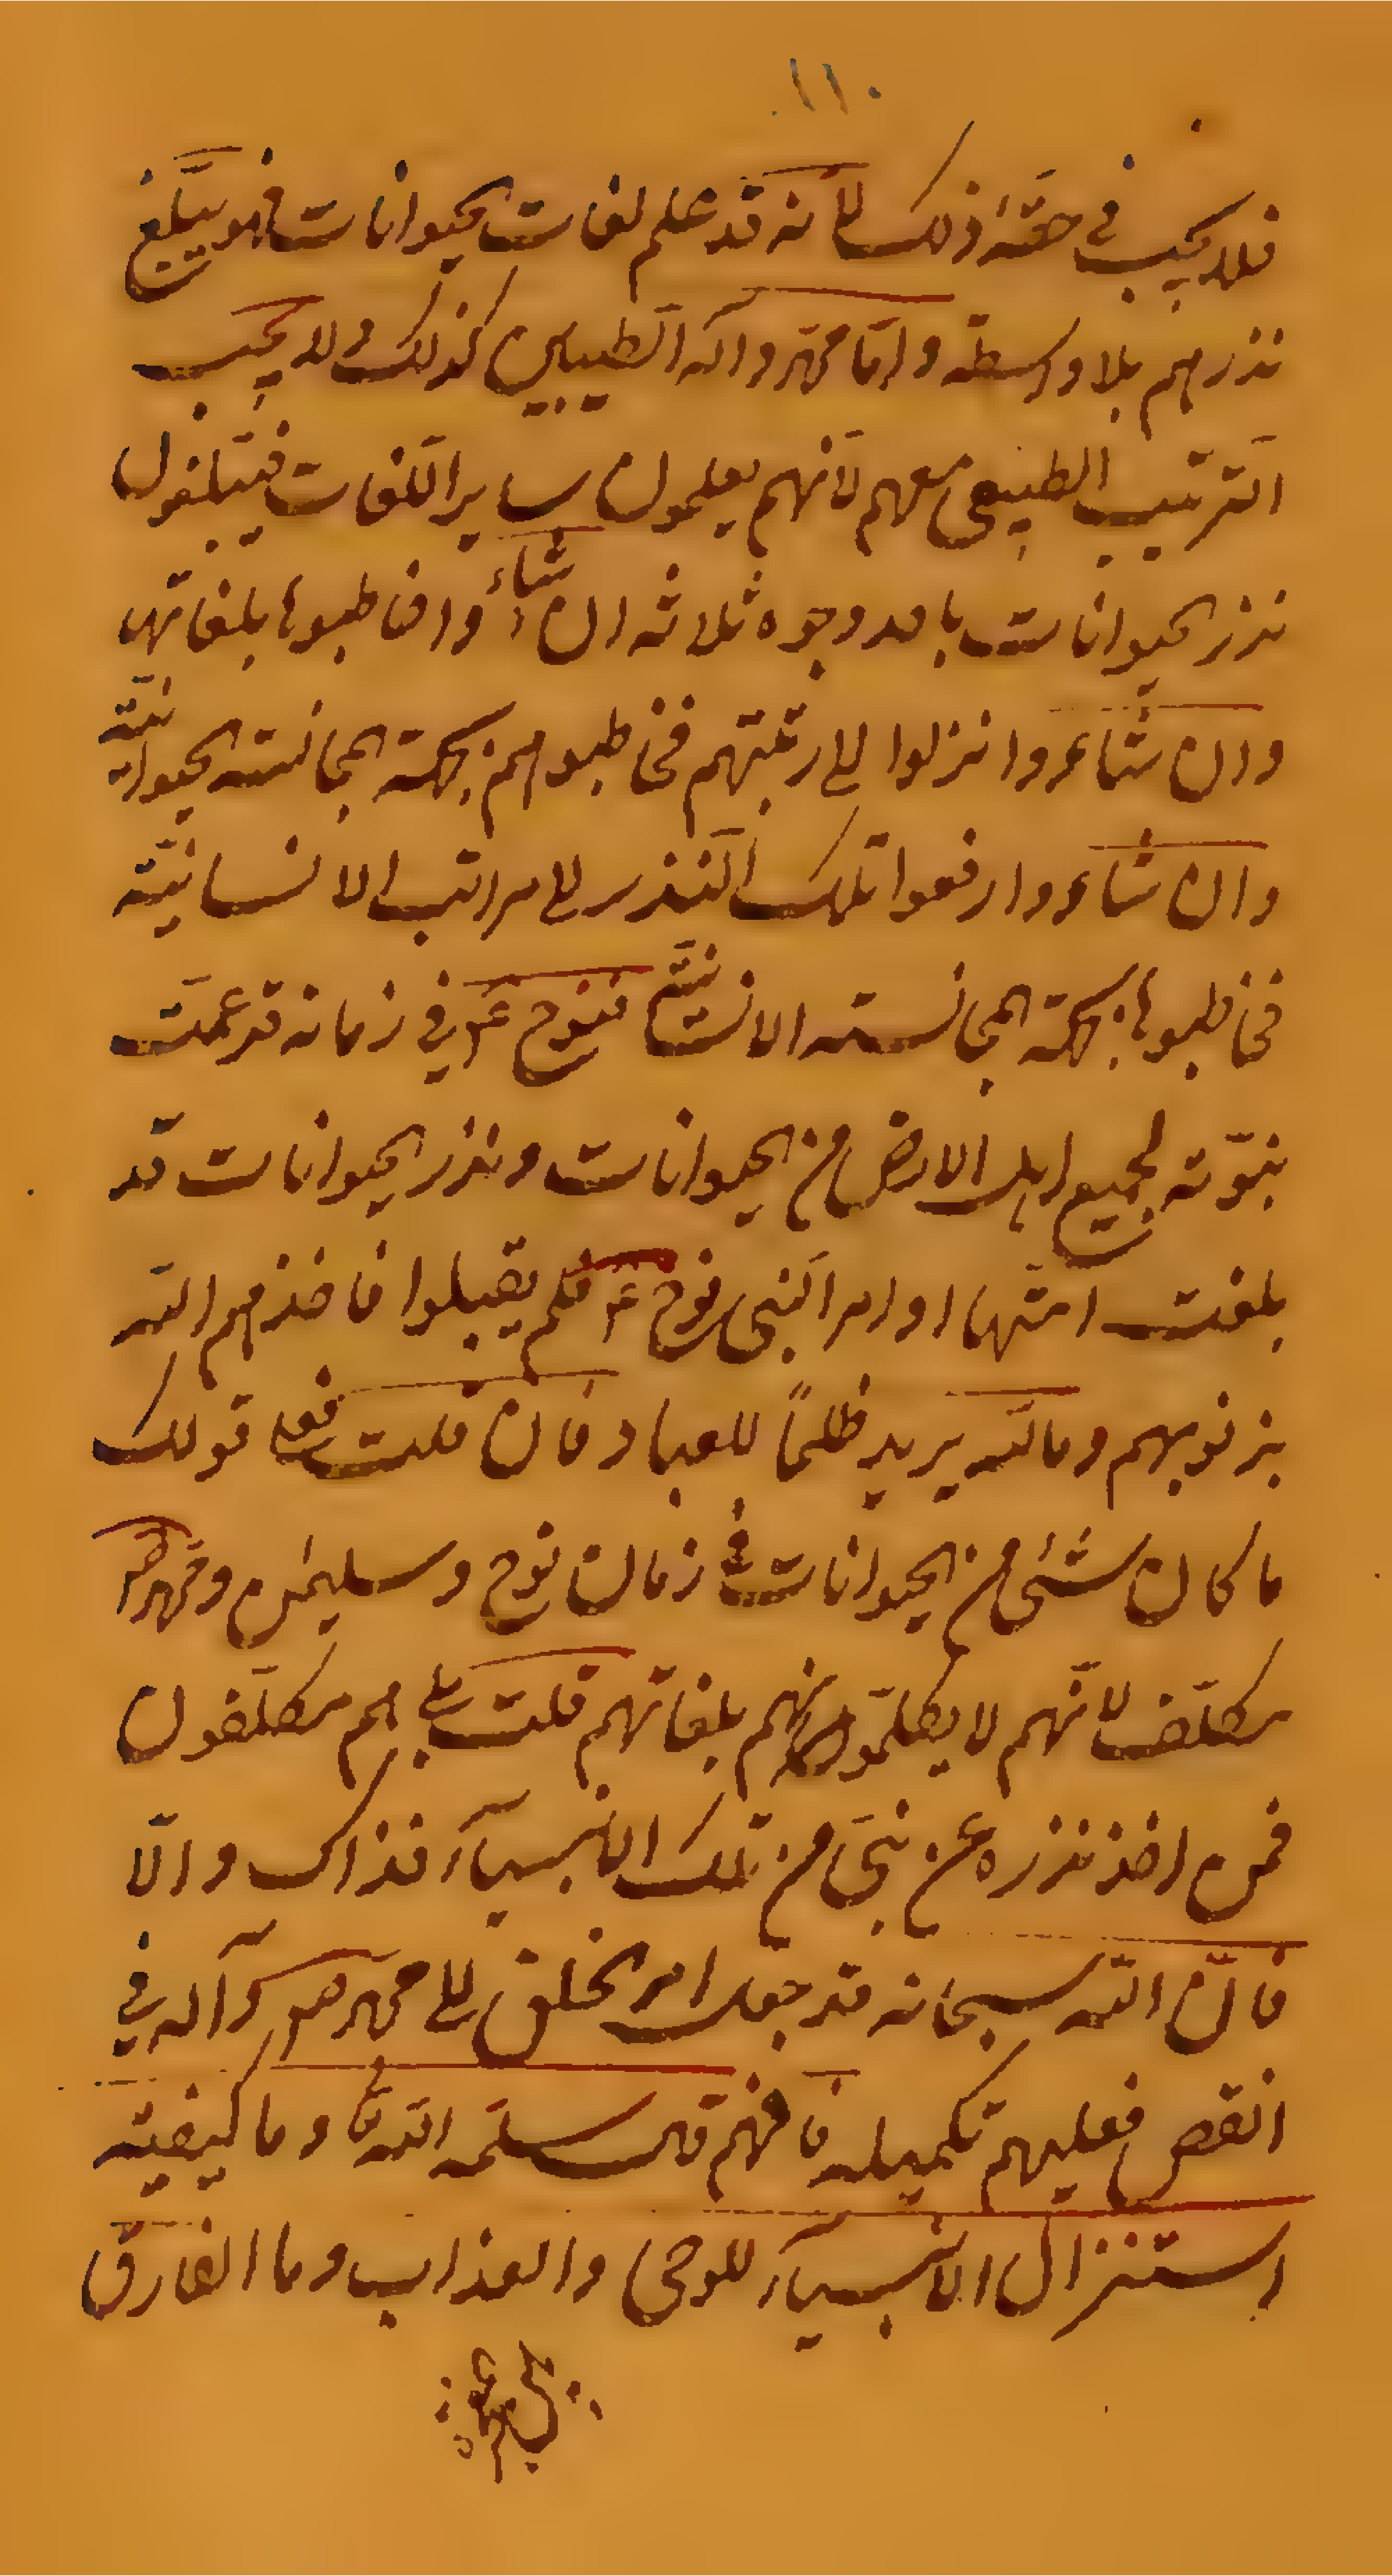 ١١٠
فلا يجب في حقّه ذلك لأنه قد علم لغات الحيوانات فهو يبلّغ
نذرهم بلا واسطة وامّا محمّد وآله الطيبين كذلك ولا يجب
التّرتيب الطبيعي معهم لأنهم يعلمون ساير اللّغات فيبلغون
نذر الحيوانات باحد وجوه ثلاثه ان شاءوا خاطبوها بلغاتها
وان شاءوا نزلوا الى رتبتهم فخاطبوهم بجهة المجانسة الحيوانيّة
وان شاءوا رفعوا تلك النّذر الى مراتب الانسانيّة
فخاطبوها بجهة المجانسته الانسانيّة فنوح ع في زمانه قد عمّت
نبوّته لجميع اهل الارض من الحيوانات ونذر الحيوانات قد
بلغت امّتها اوامر النّبي نوح ع فلم يقبلوا فاخذهم الله
بذنوبهم وما الله يريد ظلماً للعباد فان قلت فعلى قولك
ما كان شئ من الحيوانات في زمان نوح وسليمن ومحمد ص
مكلّف لأنّهم لا يكلّمونهم بلغاتهم قلت بلى هم مكلّفون
فمن اخذ نذره عن نبيّ من تلك الانبيآء فذاك والّا
فانّ الله سبحانه قد جعل امر الخلق الى محمد ص وآله في
انقص فعليهم تكميله فافهم قال سلّمه الله تع وما كيفيّة
استنزال الانبيآء للوحى والعذاب وما الفارق